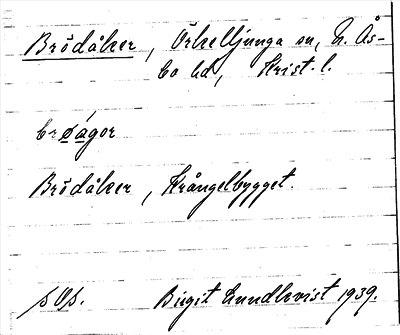 Brödåker, Örkelljunga sn, N. Ås-
bo hd, Krist. l.
brøagor
Brödåker, Krångelbygget.
p Op.
Birgit Lundkvist 1939.